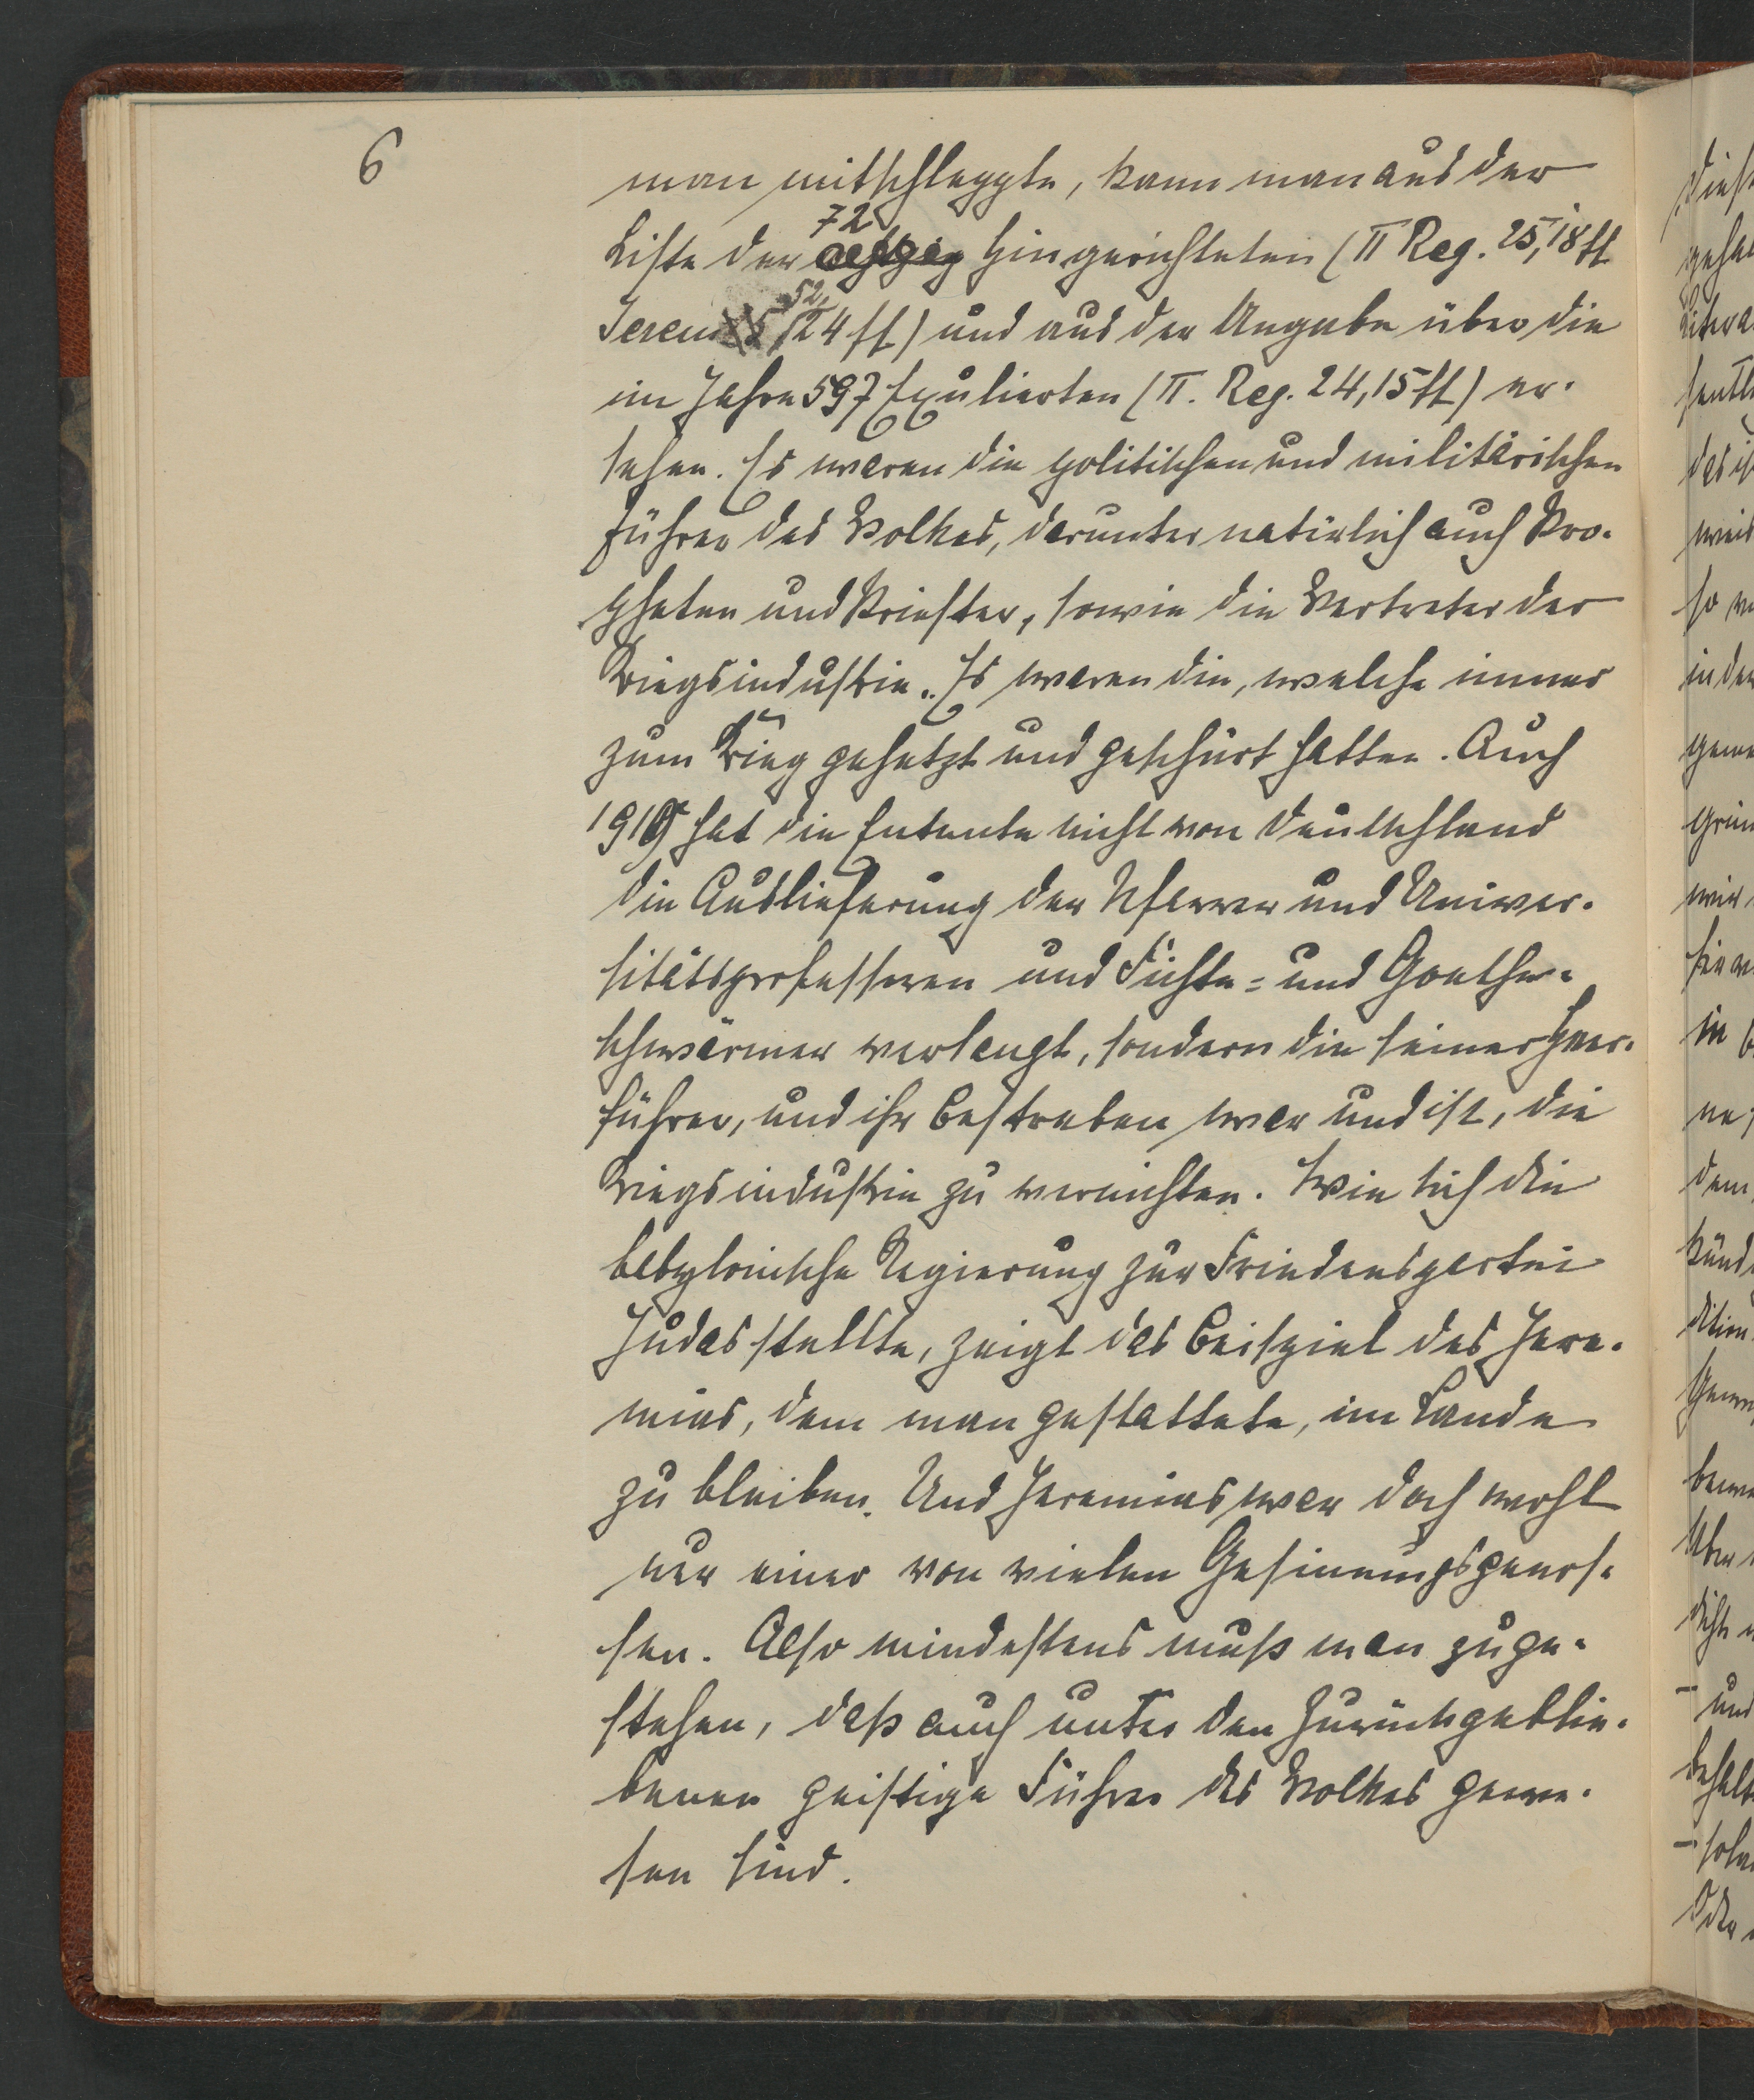 6
man mitschleppte, kann man aus der
72
Liste der achtzig Hingerichteten (II Reg. 25,18ff
52,
Jerem 24ff) und aus der Angabe über die
im Jahre 597 Exulierten (II. Reg. 24,15ff) er-
sehen. Es waren die politischen und militärischen
Führer des Volkes, darunter natürlich auch Pro-
pheten und Priester, sowie die Vertreter der
Kriegsindustrie. Es waren die, welche immer
zum Krieg gehetzt und geschürt hatten. Auch
1919 hat die Entente nicht von Deutschland
die Auslieferung der Pfarrer und Univer-
sitätsprofessoren und Fichte= und Goethe-
schwärmer verlangt, sondern die seiner Heer-
führer, und ihr Bestreben war und ist, die
Kriegsindustrie zu vernichten. Wie sich die
babylonische Regierung zur Friedenspartei
Judas stellte, zeigt das Beispiel des Jere-
mias, dem man gestattete, im Lande
zu bleiben. Und Jeremias war doch wohl
nur einer von vielen Gesinnungsgenos-
sen. Also mindestens muß man zuge-
stehen, daß auch unter den Zurückgeblie-
benen geistige Führer des Volkes gewe-
sen sind.